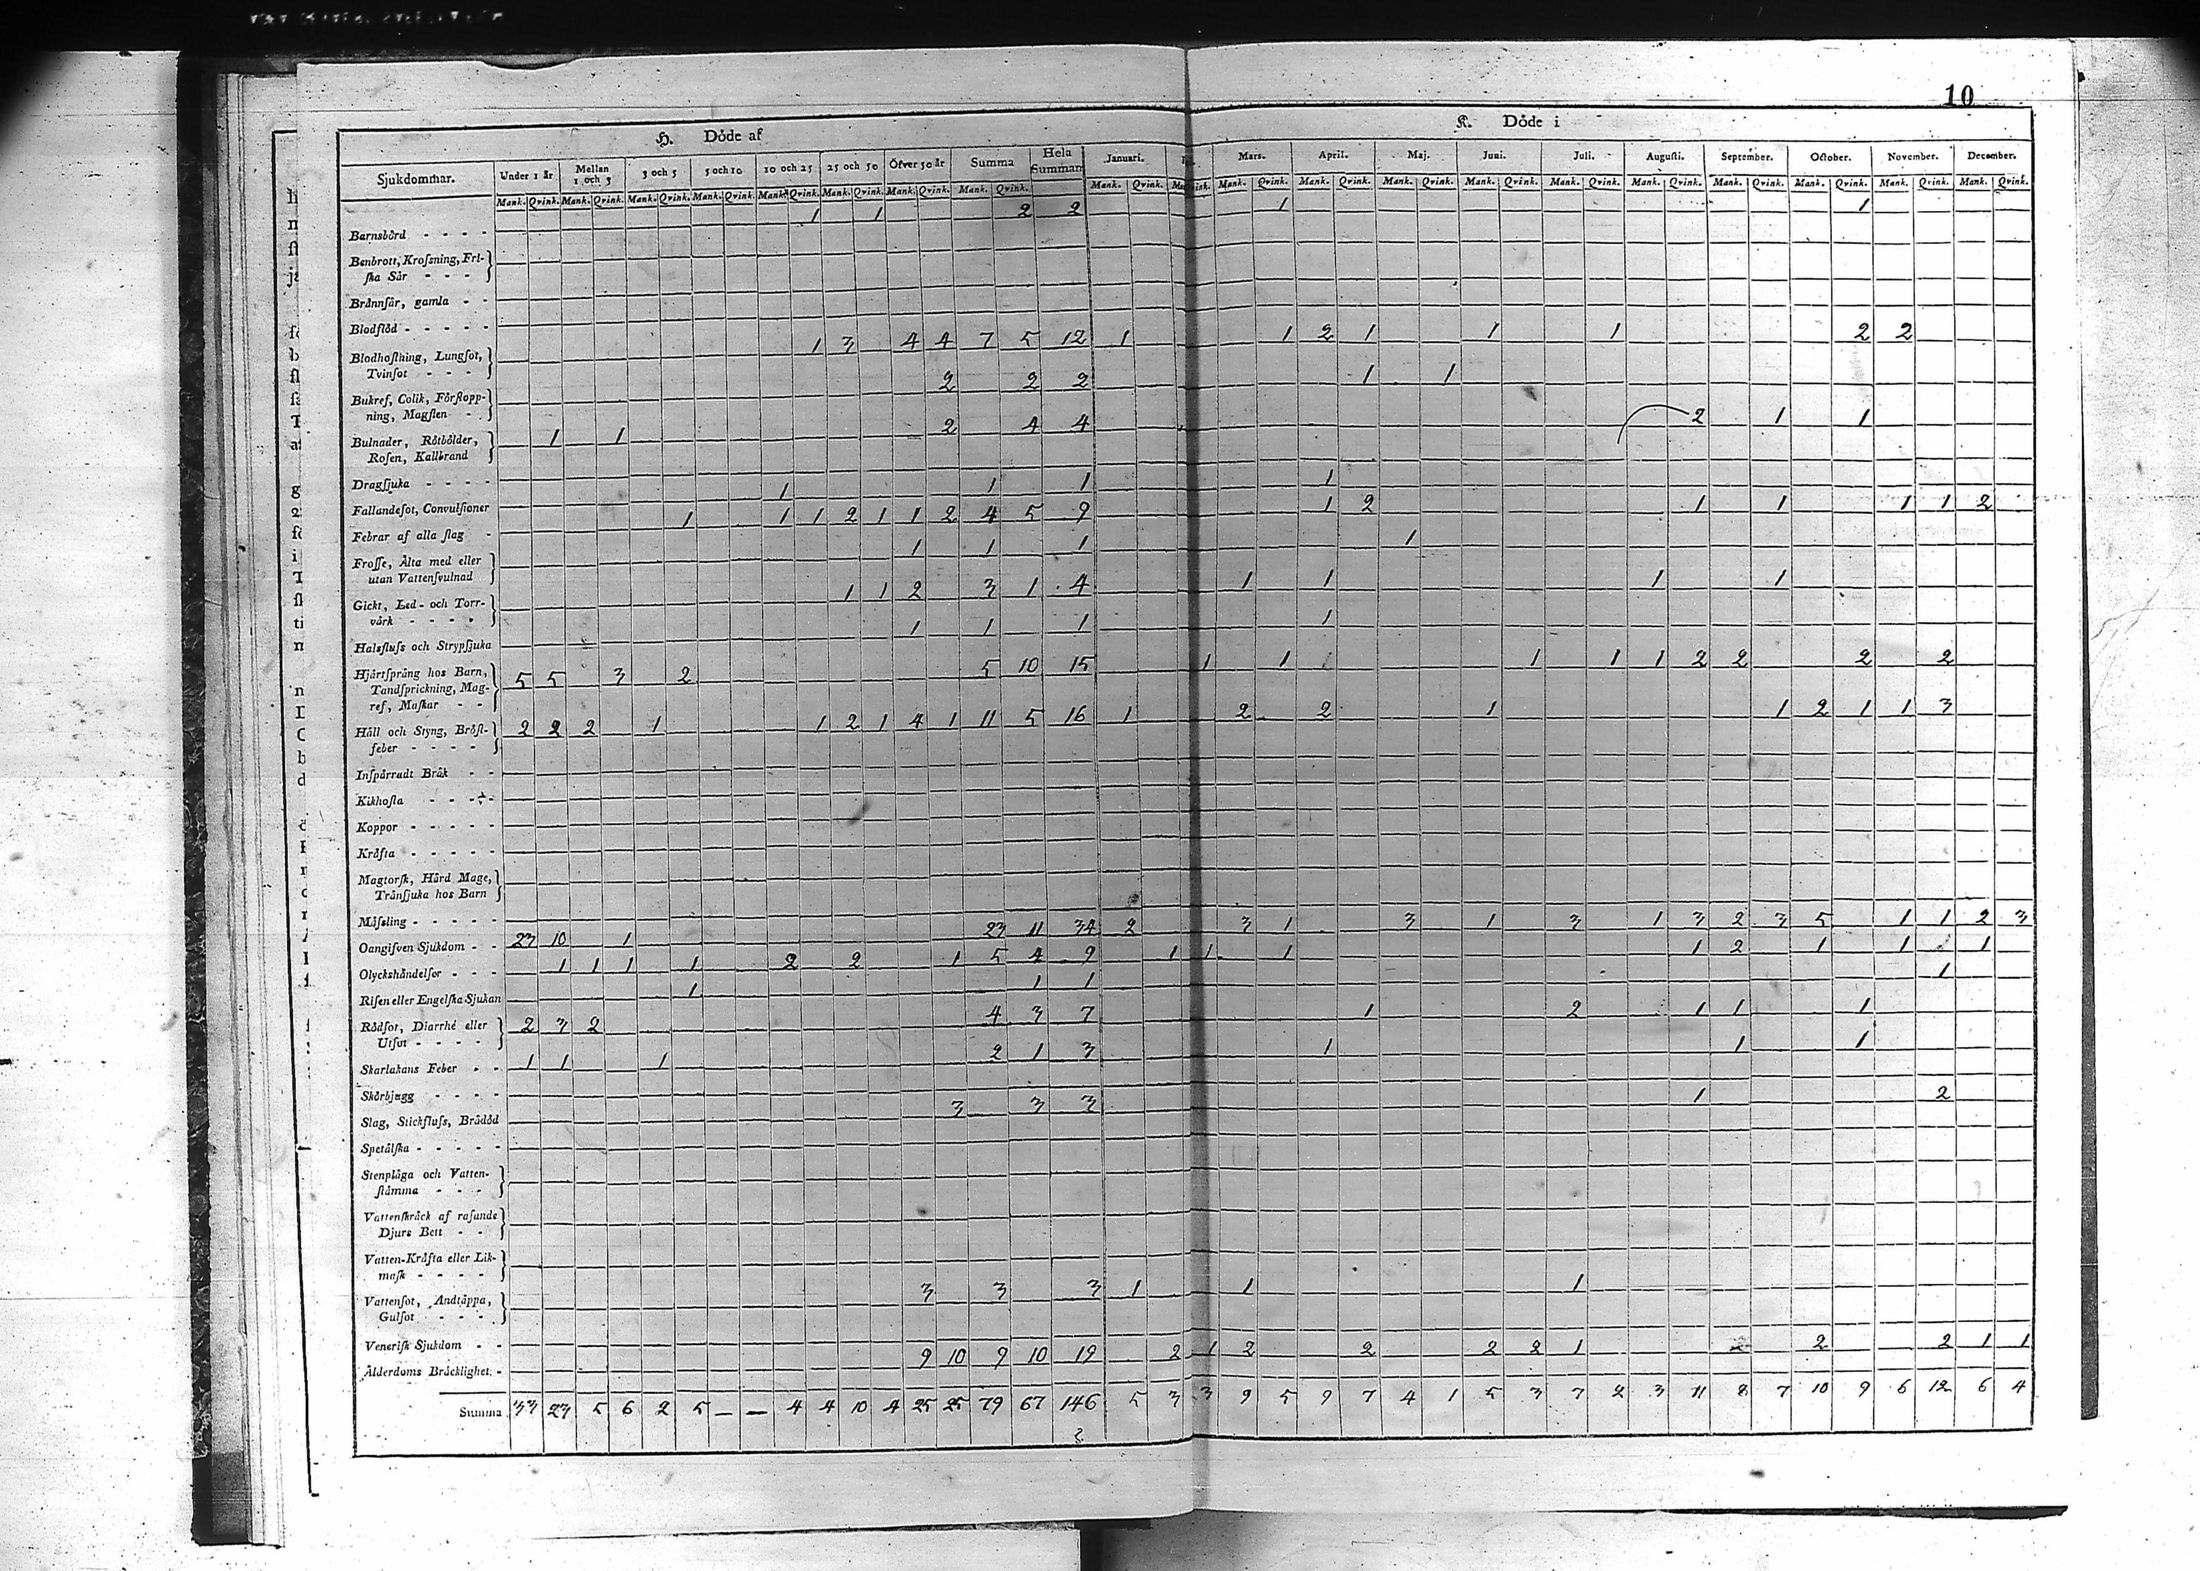 10
H. Döde af
K. Döde i
Sjukdommar. Under 1 år Mellan 1 och 3 3 och 5 5 och 10 10 och 25 25 och 50 Öfver 50 år Summa Hela Summan Januari. Mars. April. Maj. Juni. Juli. Augusti. September. October. November. December.
Mank. Qvink. Mank. Qvink. Mank. Qvink. Mank. Qvink. Mank. Qvink. Mank. Qvink. Mank. Qvink. Mank. Qvink. Mank. Qvink. Mank. Qvink. Mank. Qvink. Mank. Qvink. Mank. Qvink. Mank. Qvink. Mank. Qvink. Mank. Qvink. Mank. Qvink. Mank. Qvink. Mank. Qvink. Mank. Qvink.
1 1 2 2 1 1
Barnsbörd - - - -
Benbrott, Krosſning, Fri-
ſka Sår - - -
Brännſår, gamla - -
Blodflöd - - - - -
1 3 4 4 7 5 12 1 1 2 1 1 1 2 2
Blodhoſtning, Lungſot,
Tvinſot - - -
2 2 2 1 1
Bukref, Colik, Förſtopp-
ning, Magſten - -
1 1 2 4 4 2 1 1
Bulnader, Rötbölder,
Roſen, Kallbrand
Dragſjuka - - - -
1 1 1 1
Fallandeſot, Convulſioner
1 1 1 2 1 1 2 4 5 9 1 2 1 1 1 1 2
Febrar af alla ſlag -
1 1 1 1
Froſſe, Älta med eller
utan Vattenſvulnad
1 1 2 3 1 4 1 1 1 1
Gickt, Led- och Torr-
värk - - - -
1 1 1 1
Halsfluſs och Strypſjuka
5 5 3 2 5 10 15 1 1 1 1 1 2 2 2 2
Hjärtſprång hos Barn,
Tandſprickning, Mag-
ref, Maſkar - -
2 2 2 1 1 2 1 4 1 11 5 16 1 2 2 1 1 2 1 1 3
Håll och Styng, Bröſt-
feber - - - -
Inſpärradt Bråk - -
Kikhoſta - - - -
Koppor - - - - -
Kräfta - - - - -
Magtorſk, Hård Mage,
Tränſjuka hos Barn
Måſsling - - - - -
23 10 1 23 11 34 2 3 1 3 1 3 1 3 2 3 5 1 1 2 3
Oangifven Sjukdom - -
1 1 1 1 2 2 1 5 4 9 1 1 1 1 2 1 1 1
Olyckshändelſer - - -
1 1 1 1
Riſen eller Engelſka Sjukan
2 3 2 4 3 7 1 2 1 1 1
Rödſot, Diarrhé eller
Utſot - - - -
1 1 1 2 1 3 1 1 1
Skarlakans Feber - -
Skörbjugg - - - -
3 3 3 1 2
Slag, Stickfluſs, Brådöd
Spetälſka - - - - -
Stenplåga och Vatten-
ſtämma - - -
Vattenſkräck af raſande
Djurs Bett - -
Vatten-Kräfta eller Lik-
maſk - - - -
3 3 3 1 1 1
Vattenſot, Andtäppa,
Gulſot - - -
Veneriſk Sjukdom - -
9 10 9 10 19 2 1 2 2 2 2 1 2 2 2 1 1
Ålderdoms Bräcklighet. -
Summa 33 23 5 6 2 5 — — 4 4 10 4 25 25 79 67 146 5 3 3 9 5 9 7 4 1 5 3 7 2 3 11 8 7 10 9 6 12 6 4